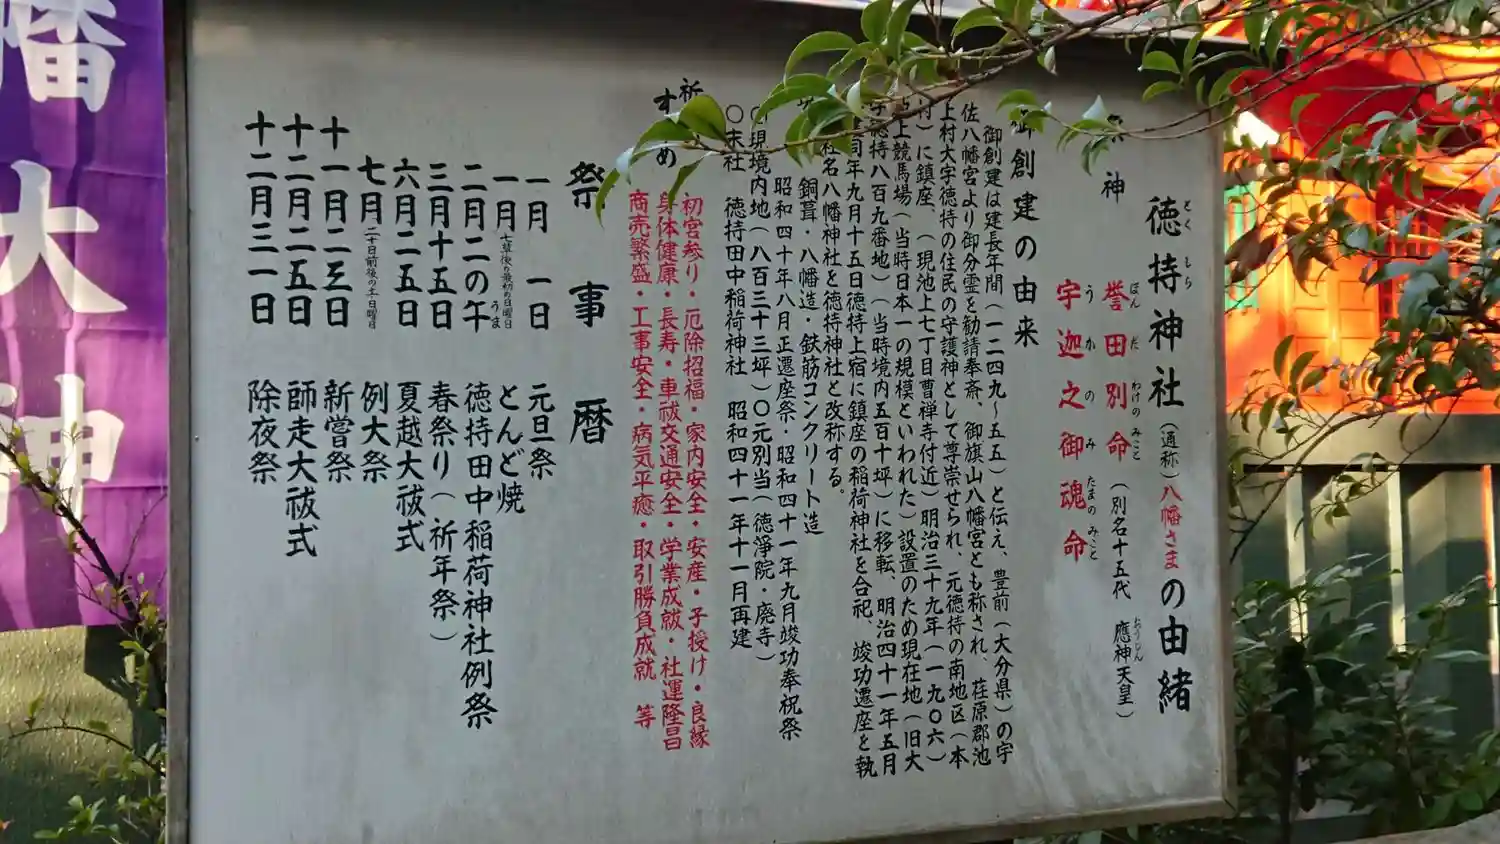 徳持神社（通称）八幡さまの由緒
とく もち
神
誉田別命（別名十五代 應神天皇）
ほん だ わけの みこと おうじん
宇迦之御魂命
う か の み たまの みこと
御創建の由来
御創建は建長年間（一二四九〜五五）と伝え、豊前（大分県）の宇
佐八幡宮より御分霊を勧請奉斎、御旗山八幡宮とも称され、荏原郡池
上村大字徳持の住民の守護神として尊崇せられ、元徳持の南地区（本
村）に鎮座、（現池上七丁目曹禅寺付近）明治三十九年（一九〇六）
上競馬場（当時日本一の規模といわれた）設置のため現在地（旧大
徳持八百九番地）（当時境内五百十坪）に移転、明治四十一年五月
同年九月十五日徳持上宿に鎮座の稲荷神社を合祀、竣功遷座と執
社名八幡神社を徳持神社と改称する。
銅葺・八幡造・鉄筋コンクリート造
昭和四十年八月正遷座祭・昭和四十一年九月竣功奉祝祭
〇現境内地（八百三十三坪）〇元別当（徳淨院・廃寺）
〇末社 徳持田中稲荷神社 昭和四十一年十一月再建
祈
すめ
初宮参り・厄除招福・家内安全・安産・子授け・良縁
身体健康・長寿・車祓交通安全・学業成就・社運隆昌
商売繁盛・工事安全・病気平癒・取引勝負成就 等
祭事暦
一月 一日 元旦祭
一月 七草後の最初の日曜日 とんど焼
二月二の午 徳持田中稲荷神社例祭
うま
三月十五日 春祭り（祈年祭）
六月二五日 夏越大祓式
七月 二十日前後の土・日曜日 例大祭
十一月二三日 新嘗祭
十二月二五日 師走大祓式
十二月三一日 除夜祭
幡大神